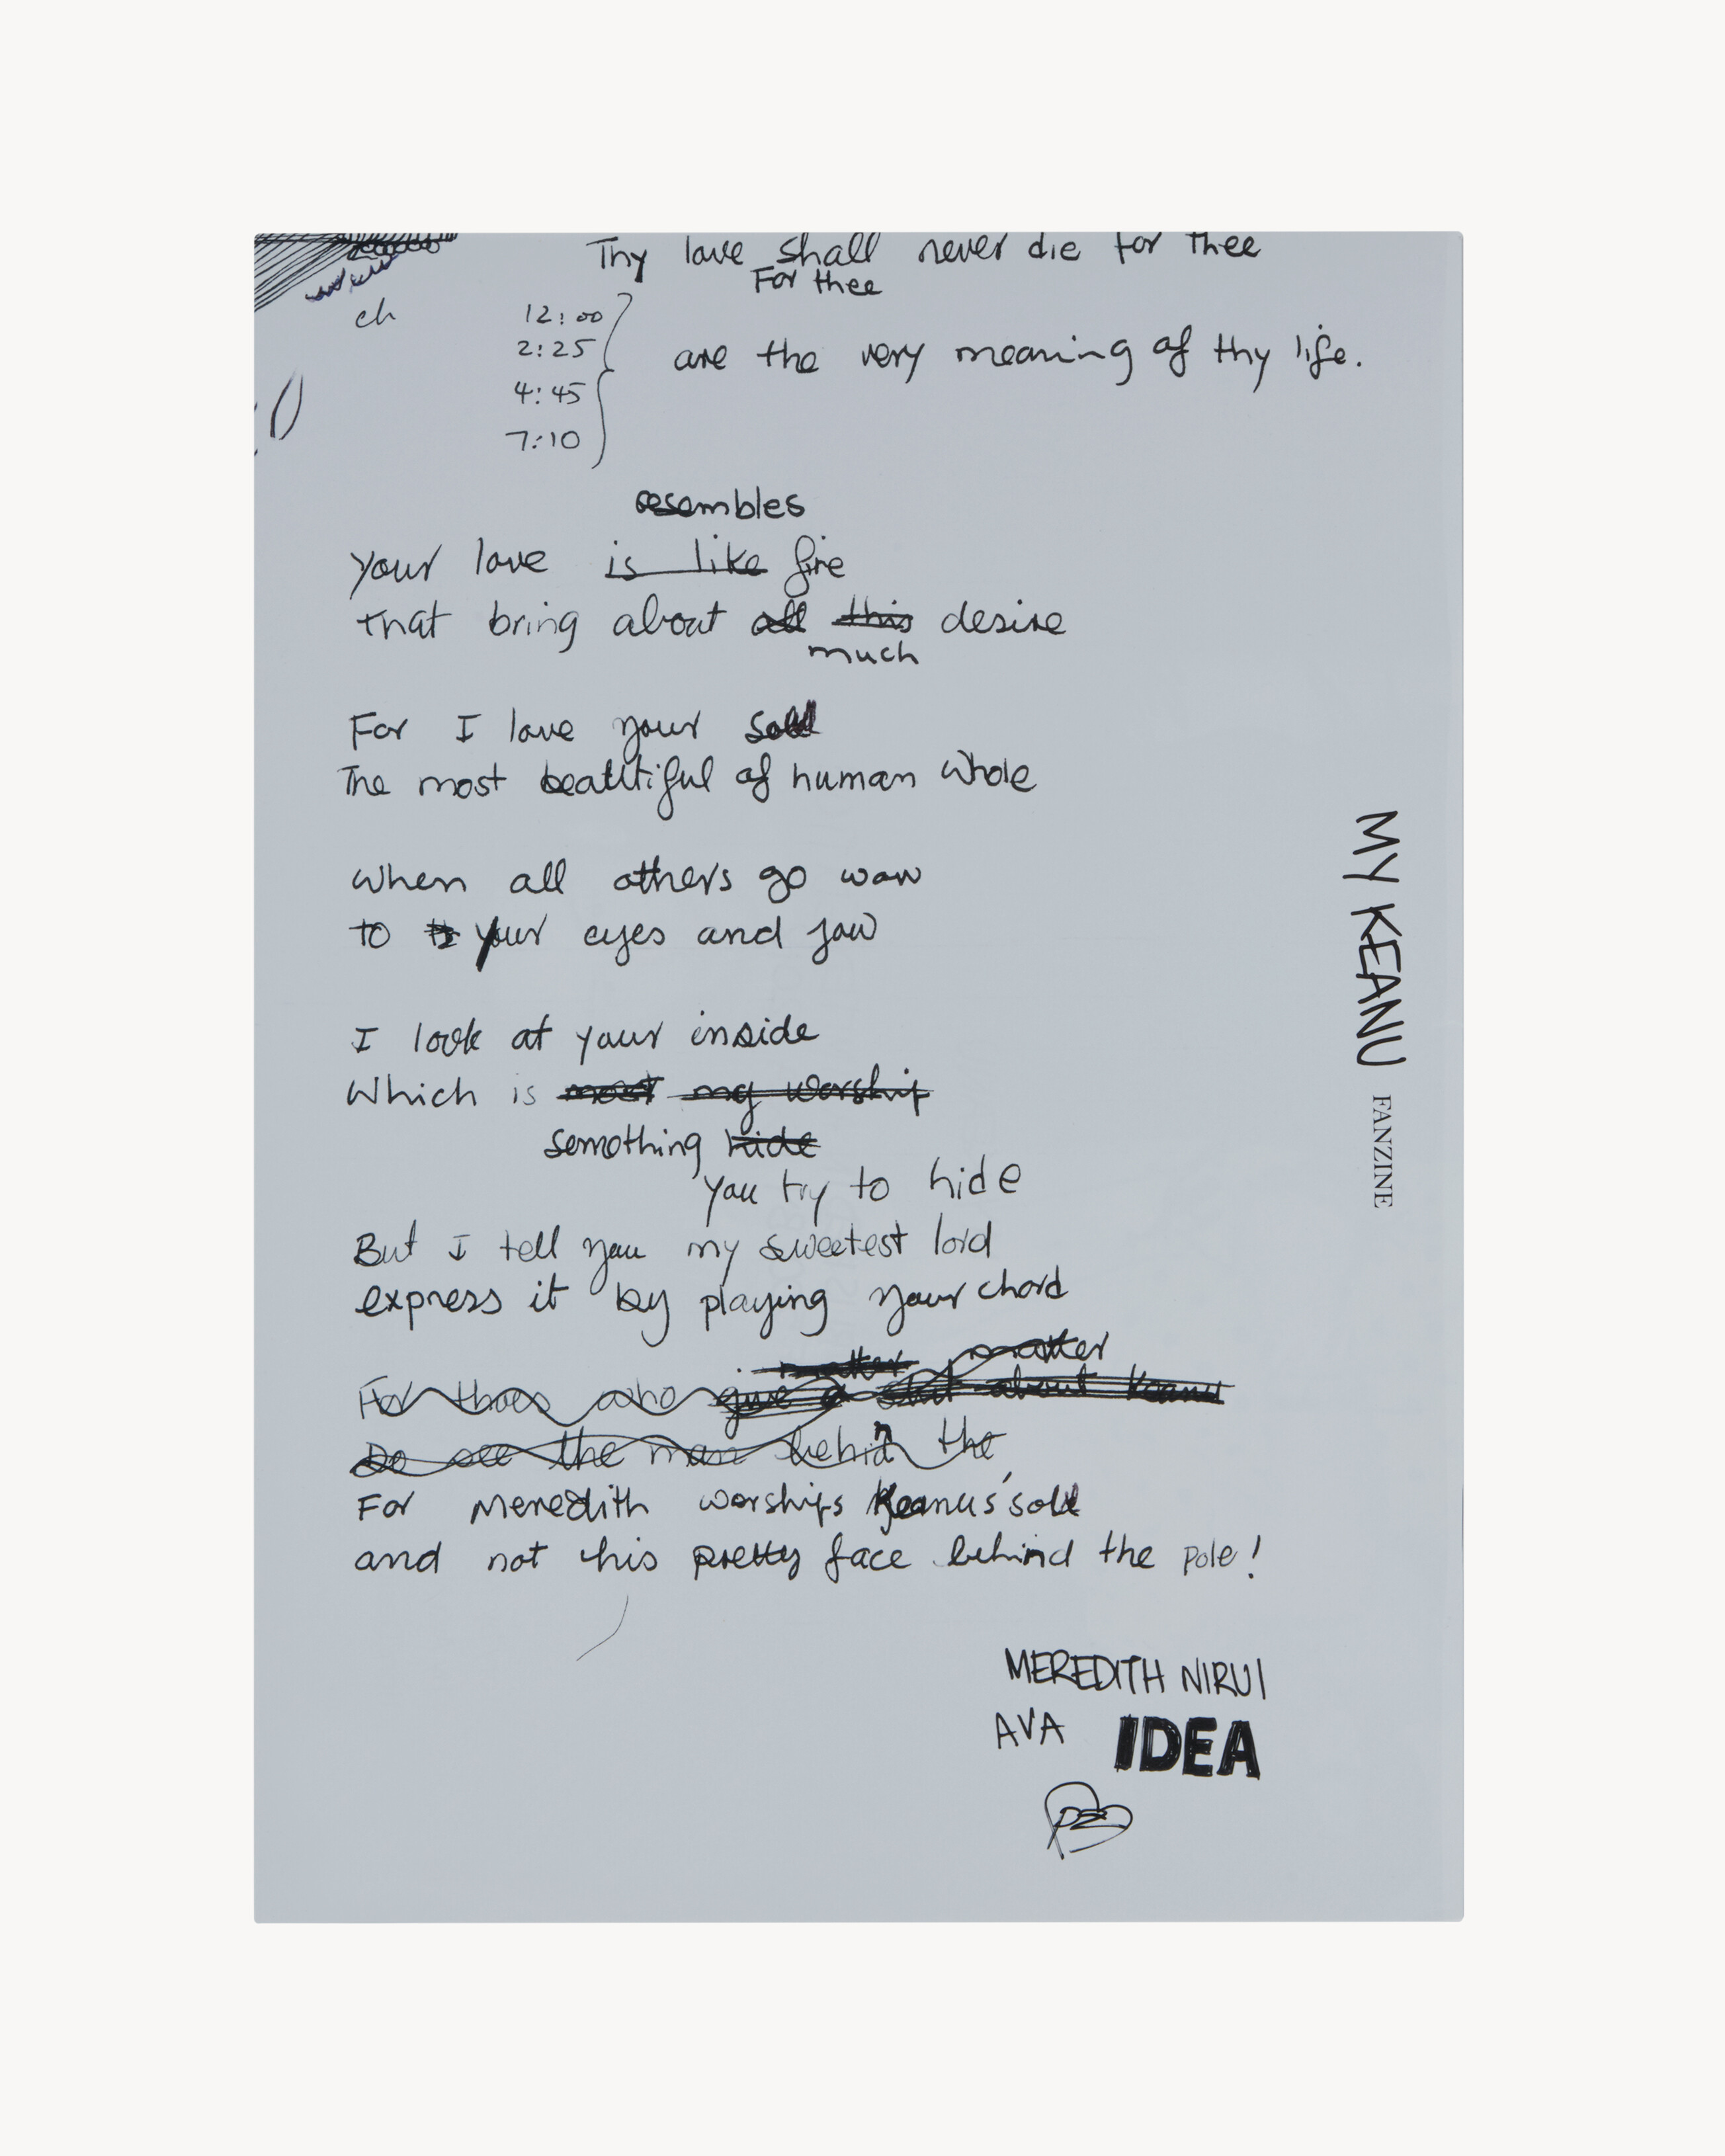 Thy love shall never die for thee
For thee
ch
12:00
2:25
are the very meaning of thy life.
4:45
7:10
resembles
Your love is like fire
that bring about all this desire
much
For I love your soul
The most beautiful of human whole
When all others go waw
to your eyes and jaw
I look at your inside
Which is most my worship
something hide
you try to hide
But I tell you my sweetest lord
express it by playing your chord
matter matter
For thoes who give a shit about Keanu
Do see the man behin the
For Meredith worships Keanus' soul
and not his pretty face behind the pole!
MY KEANU FANZINE
MEREDITH NIRUI
AVA IDEA